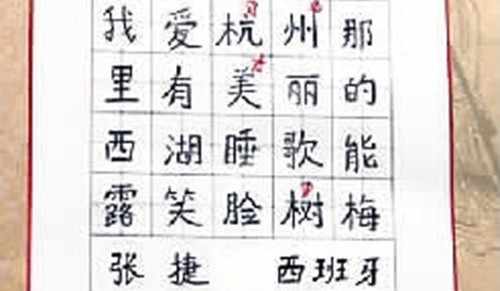 我爱杭州那
里有美丽的
西湖睡歌能
露笑脸树梅
张捷 西班牙